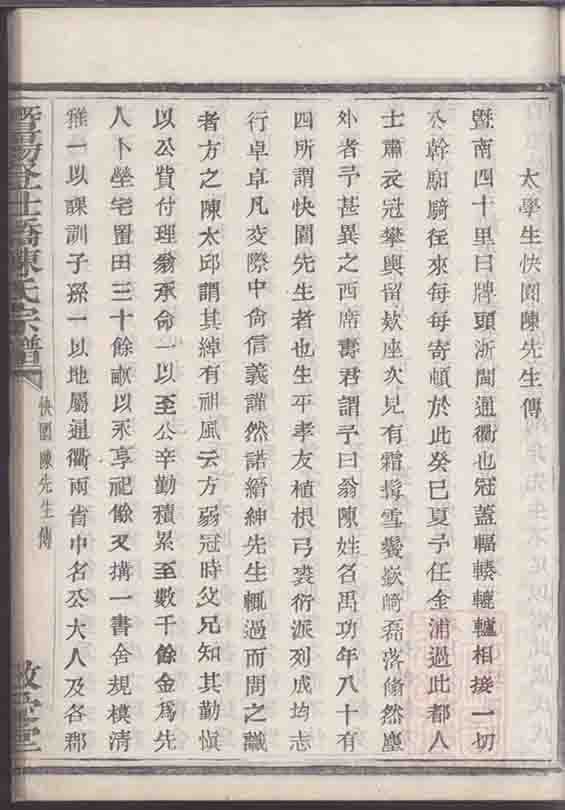 太學生快園陳先生傳
暨南四十里曰牌頭浙閩通衢也冠蓋輻輳轆轤相接一切
公幹馹騎往來每每寄頓於此癸巳夏予任金浦過此都人
士肅衣冠攀輿留欵座次見有霜髯雪鬢嶔崎磊落翛然塵
外者予甚異之西席壽君謂予曰翁陳姓名禹功年八十有
四所謂快園先生者也生平孝友植根弓裘衍派列成均志
行卓卓凡交際中尚信義謹然諾縉紳先生輒過而問之識
者方之陳太邱謂其綽有祖風云方弱冠時父兄知其勤慎
以公貲付理翁承命一以至公辛勤積累至數千餘金為先
人卜塋宅置田三十餘畝以永享祀餘又搆一書舍規模清
雅一以課訓子孫一以地屬通衢兩省中名公大人及各郡
暨陽登仕橋陳氏宗譜
快園陳先生傳
敬愛堂